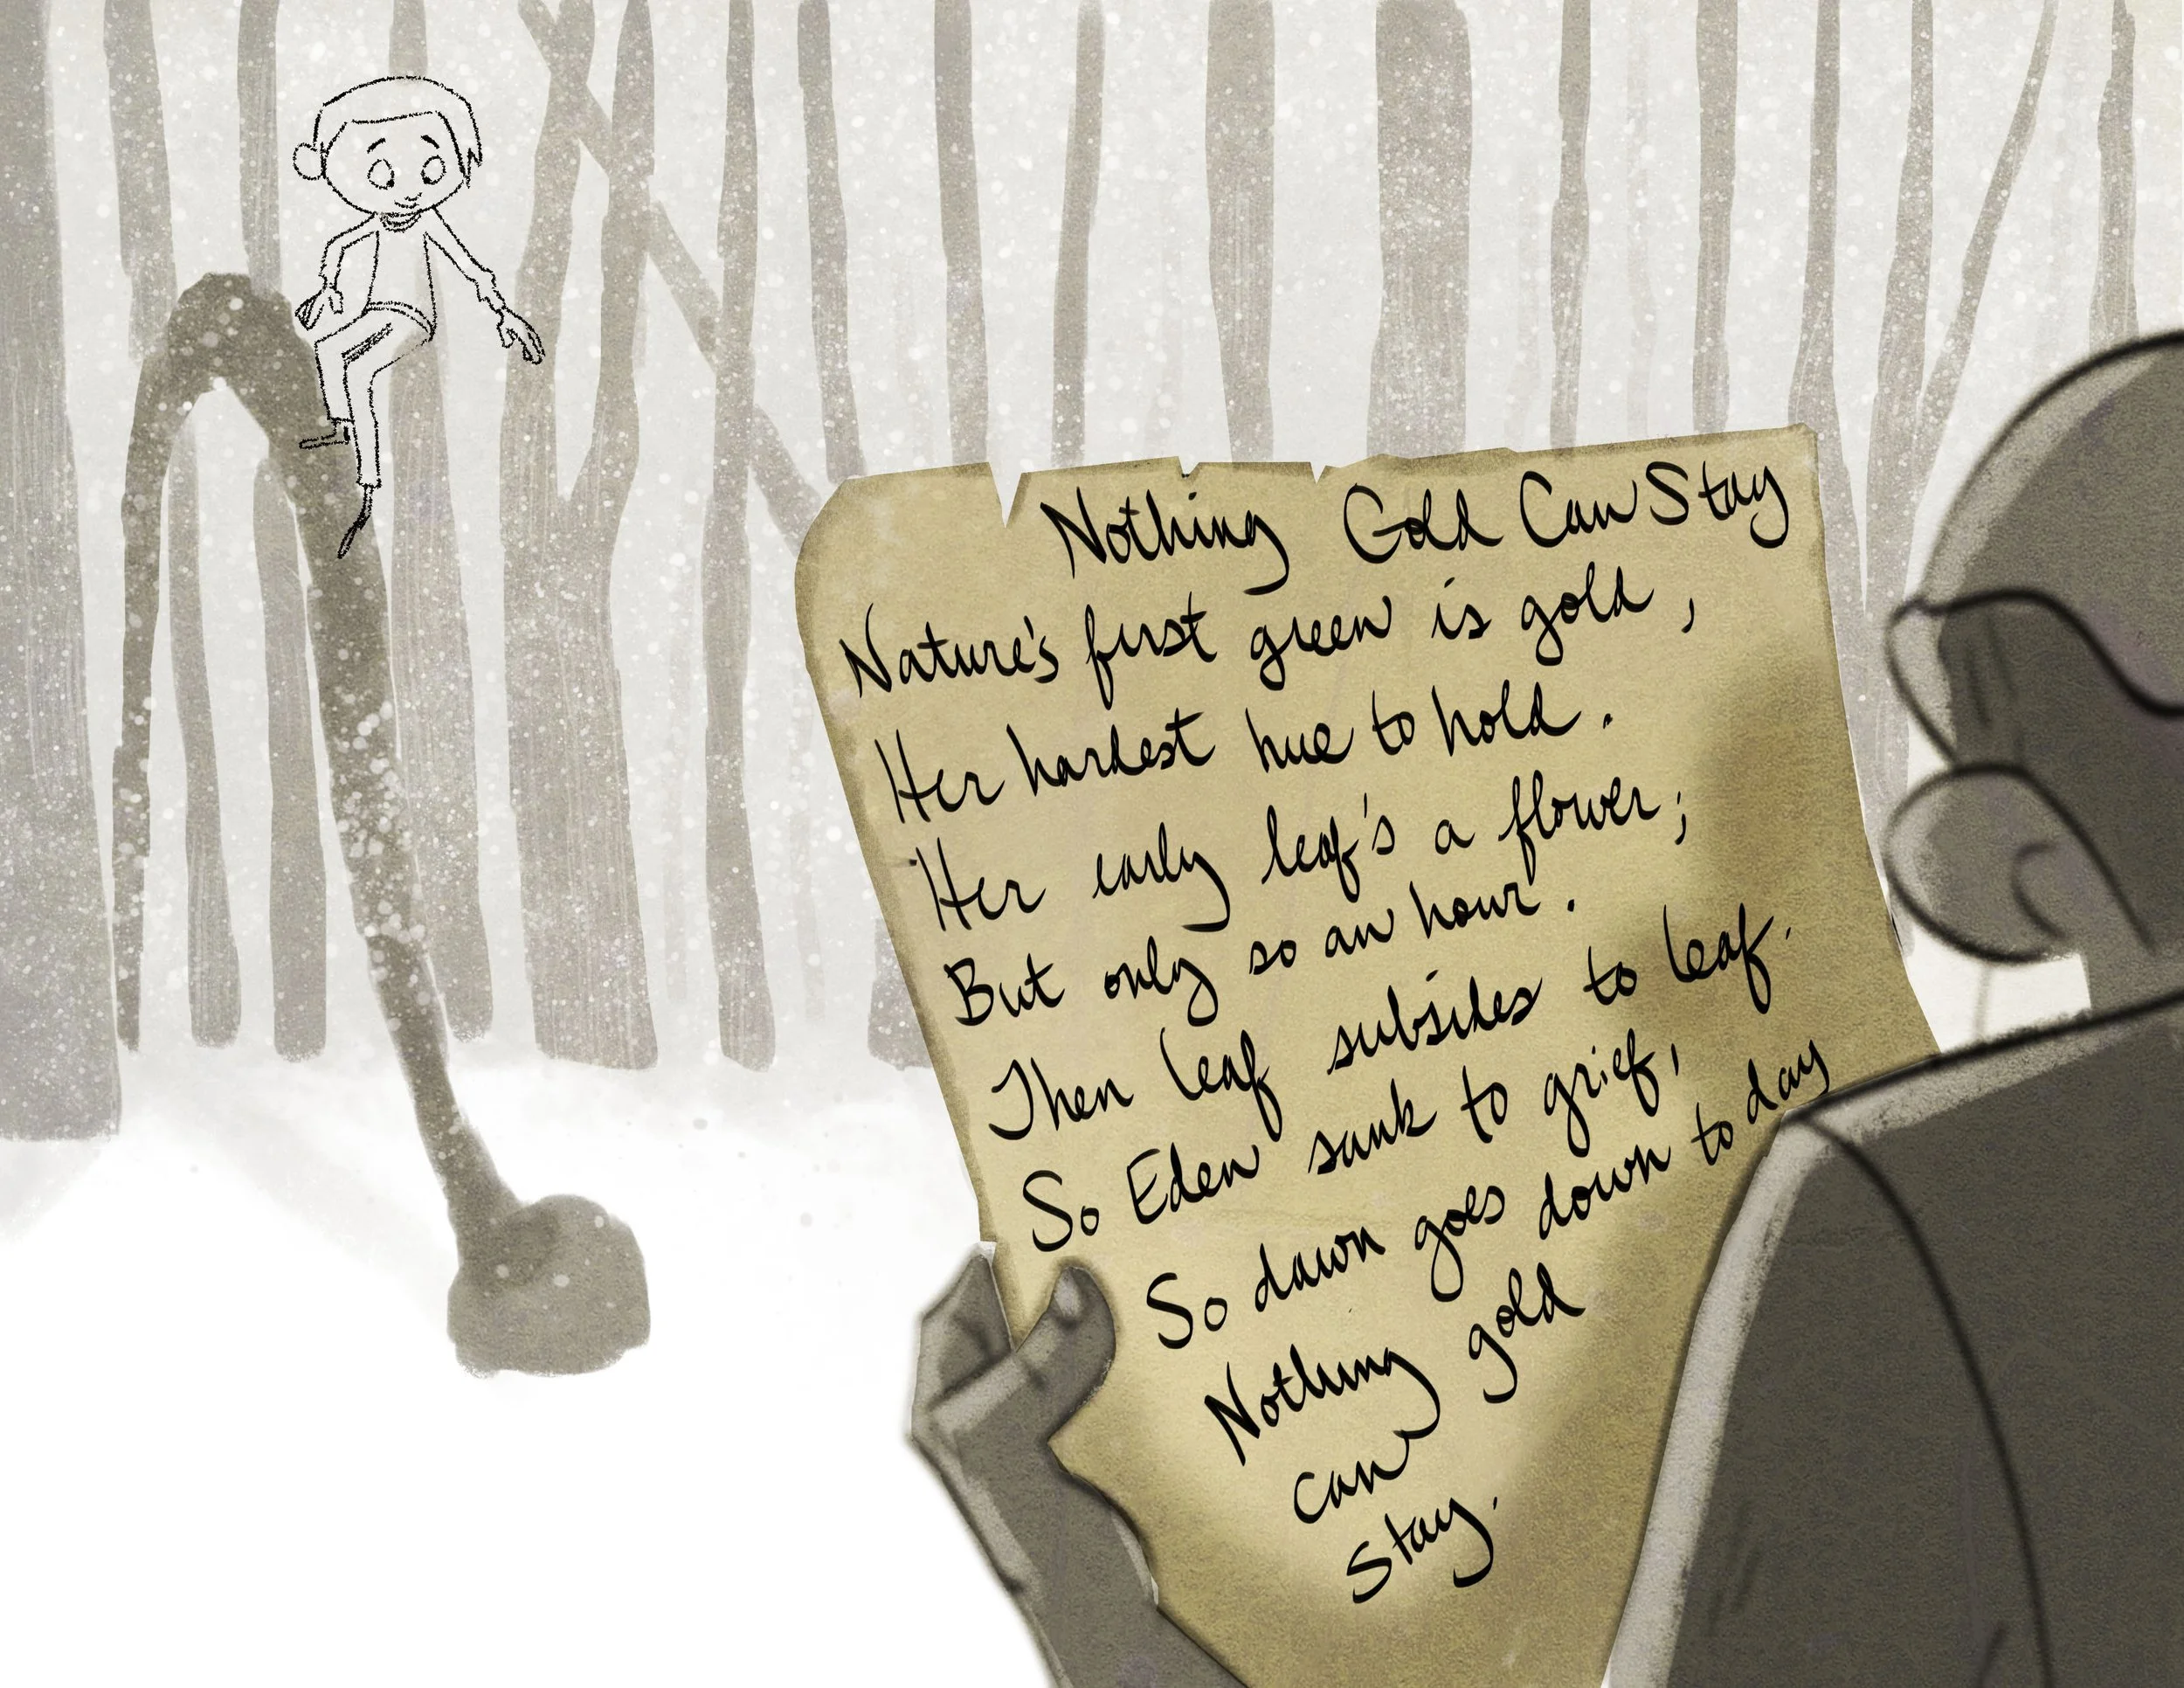 Nothing Gold Can Stay
Nature's first green is gold,
Her hardest hue to hold.
Her early leaf's a flower;
But only so an hour.
Then leaf subsides to leaf.
So Eden sank to grief,
So dawn goes down to day
Nothing gold
can
stay.